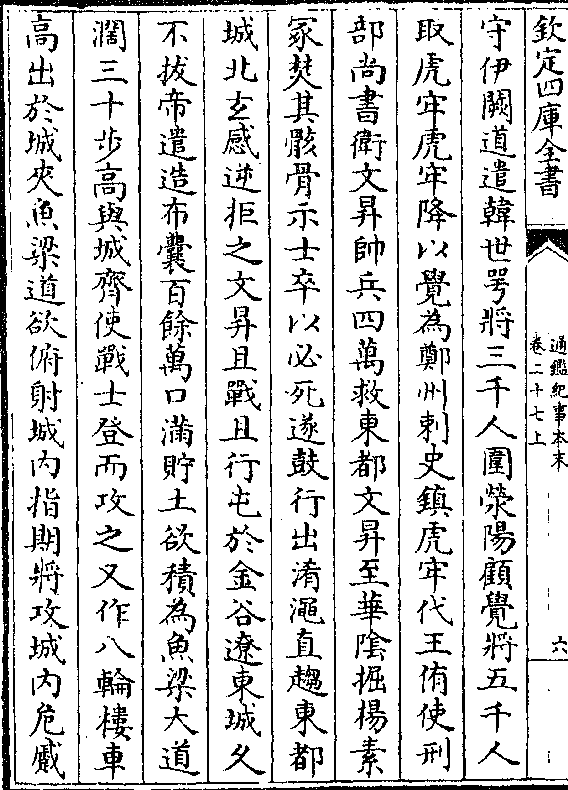 欽定四庫全書
通鑑紀事本末
卷二十七上
六
守伊闕道遣韓世咢將三千人圍滎陽顧覺將五千人
取虎牢虎牢降以覺為鄭州刺史鎮虎牢代王侑使刑
部尚書衛文昇帥兵四萬救東都文昇至華陰掘楊素
冢焚其骸骨示士卒以必死遂鼓行出淆澠直趨東都
城北玄感逆拒之文昇且戰且行屯於金谷遼東城久
不拔帝遣造布囊百餘萬口滿貯土欲積為魚梁大道
濶三十步高與城齊使戰士登而攻之又作八輪樓車
高出於城夾魚梁道欲俯射城內指期將攻城內危蹙